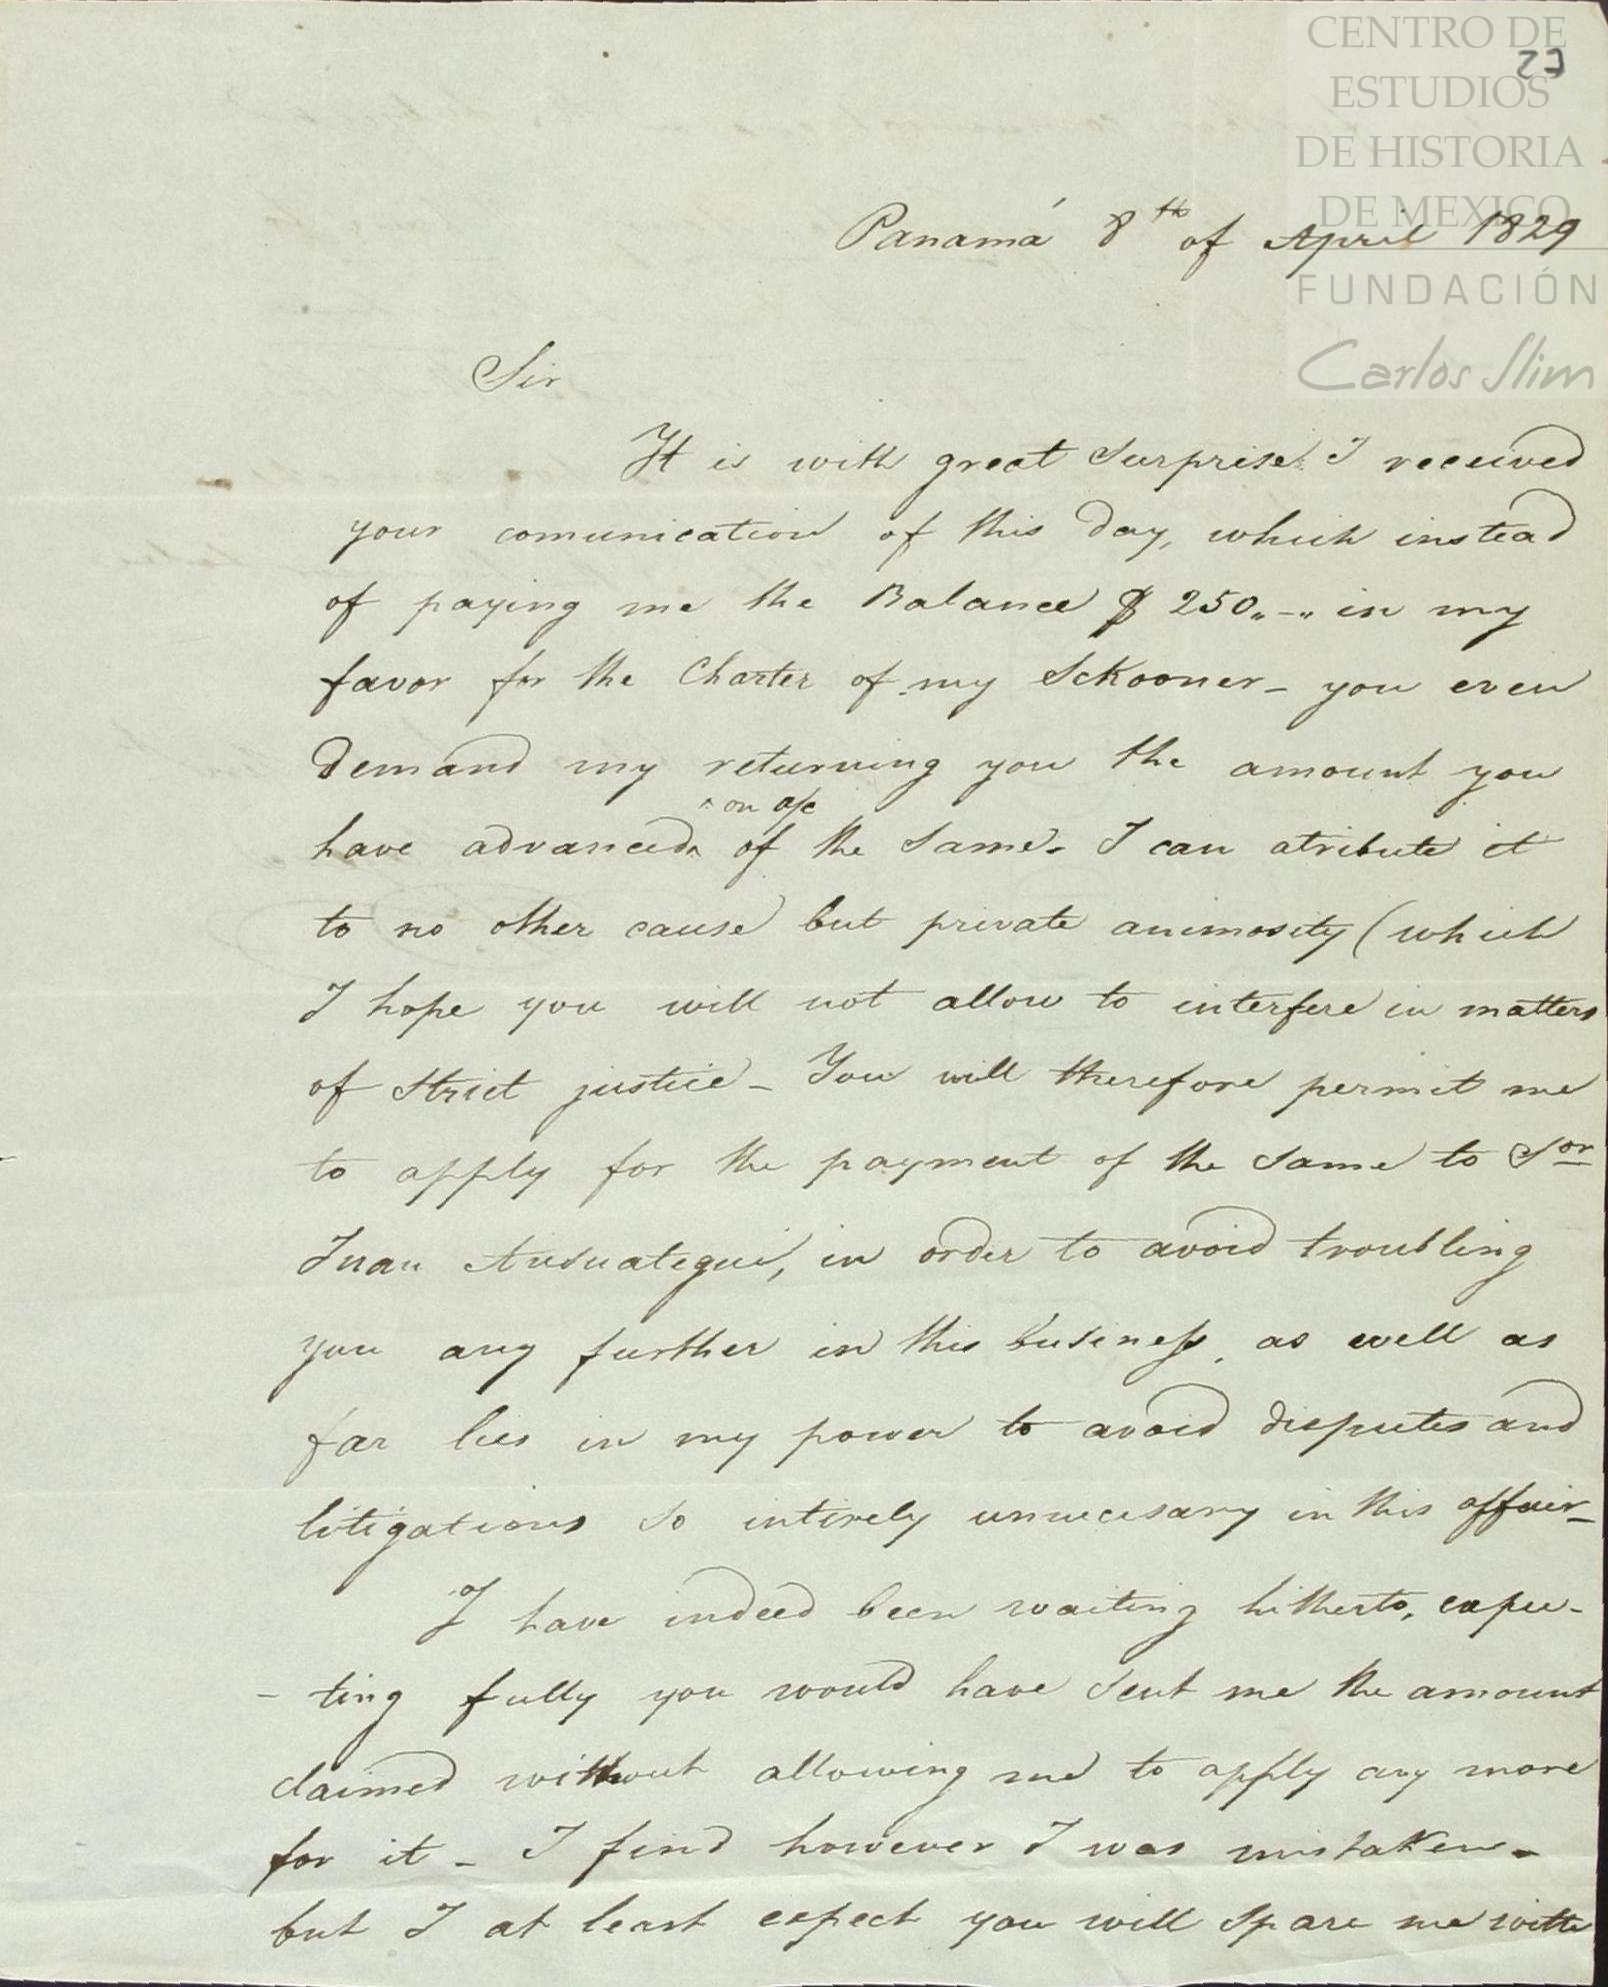 CENTRO DE
ESTUDIOS
DE HISTORIA
DE MEXICO
FUNDACIÓN
Carlos Slim
23
Panamá 8th of April 1829
Sir
It is with great surprise I received
your comunication of this day, which instead
of paying me the Balance $ 250,,-,, in my
favor for the Charter of my Sckooner - you even
demand my returning you the amount you
have advanced ^ on a/c of the same. I can atribute it
to no other cause but private animosity (which
I hope you will not allow to interfere in matters
of strict justice - You will therefore permit me
to apply for the payment of the same to Sor
Juan Ansuategui, in order to avoid troubling
you any further in this business, as well as
far lies in my power to avoid disputes and
litigations so intirely unnecesary in this affair_
I have indeed been waiting hitherto, expec-
- ting fully you would have sent me the amount
claimed without allowing me to apply any more
for it - I find however I was mistaken -
but I at least expect you will spare me with